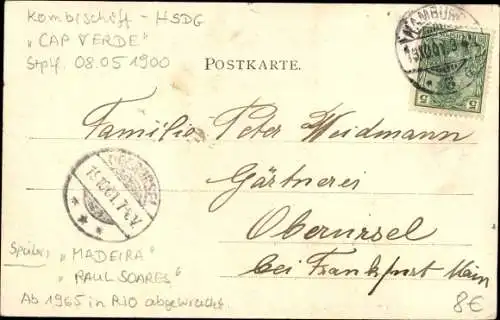 Kombischiff - HSDG
"CAP VERDE"
Stpl. 08.05 1900
HAMBURG
POSTKARTE.
5 5
Familie Peter Weidmann
Gärtnerei
Oberursel
bei Frankfurt Main
OBERURSEL
Später "MADEIRA"
"RAUL SOARES"
Ab 1965 in RIO abgewrackt
8€